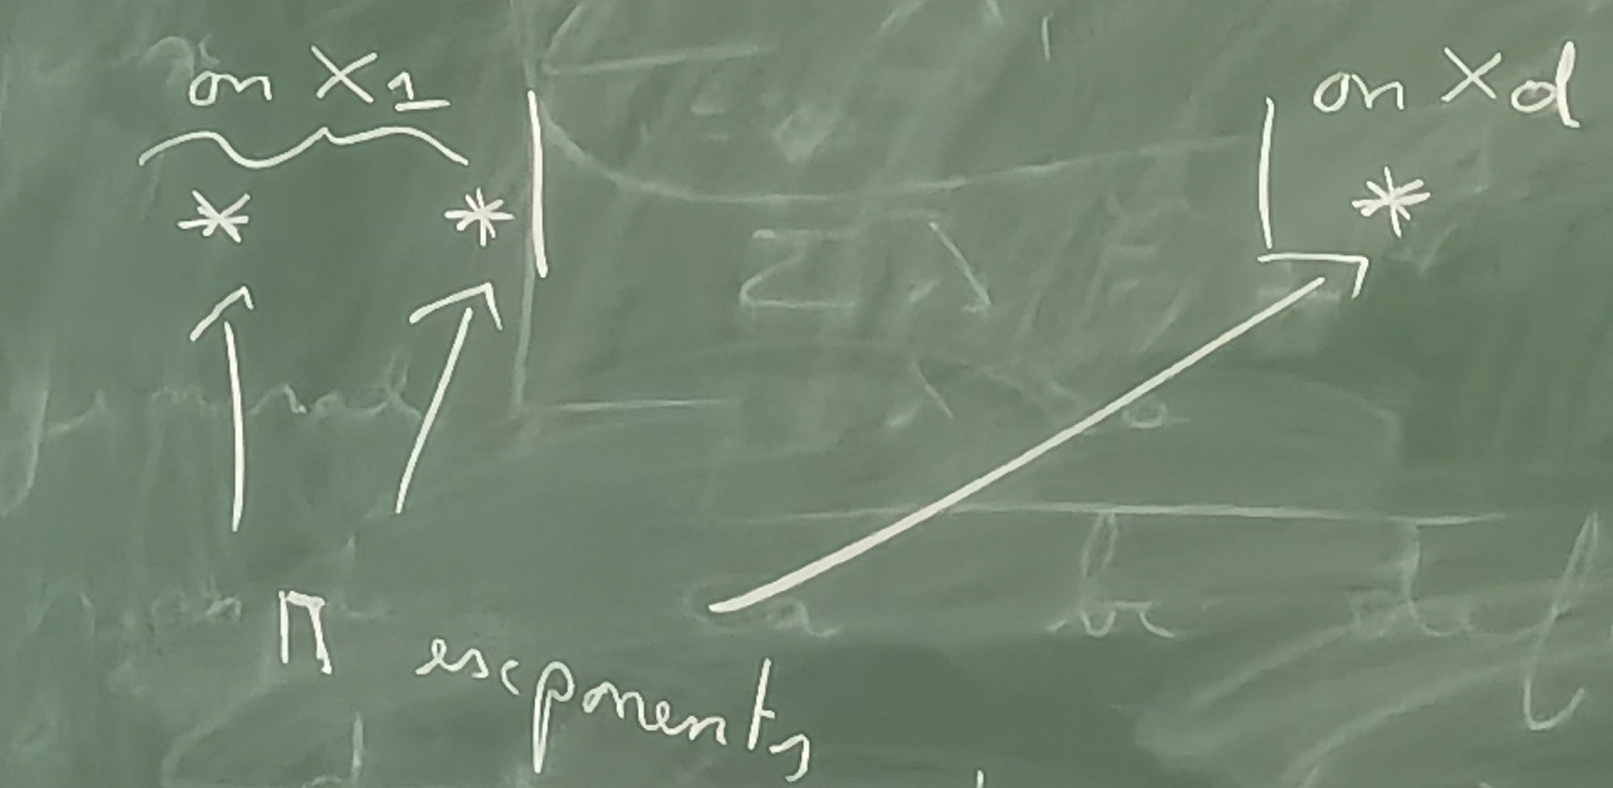 on X1 | | on Xd
* * *
n exponents